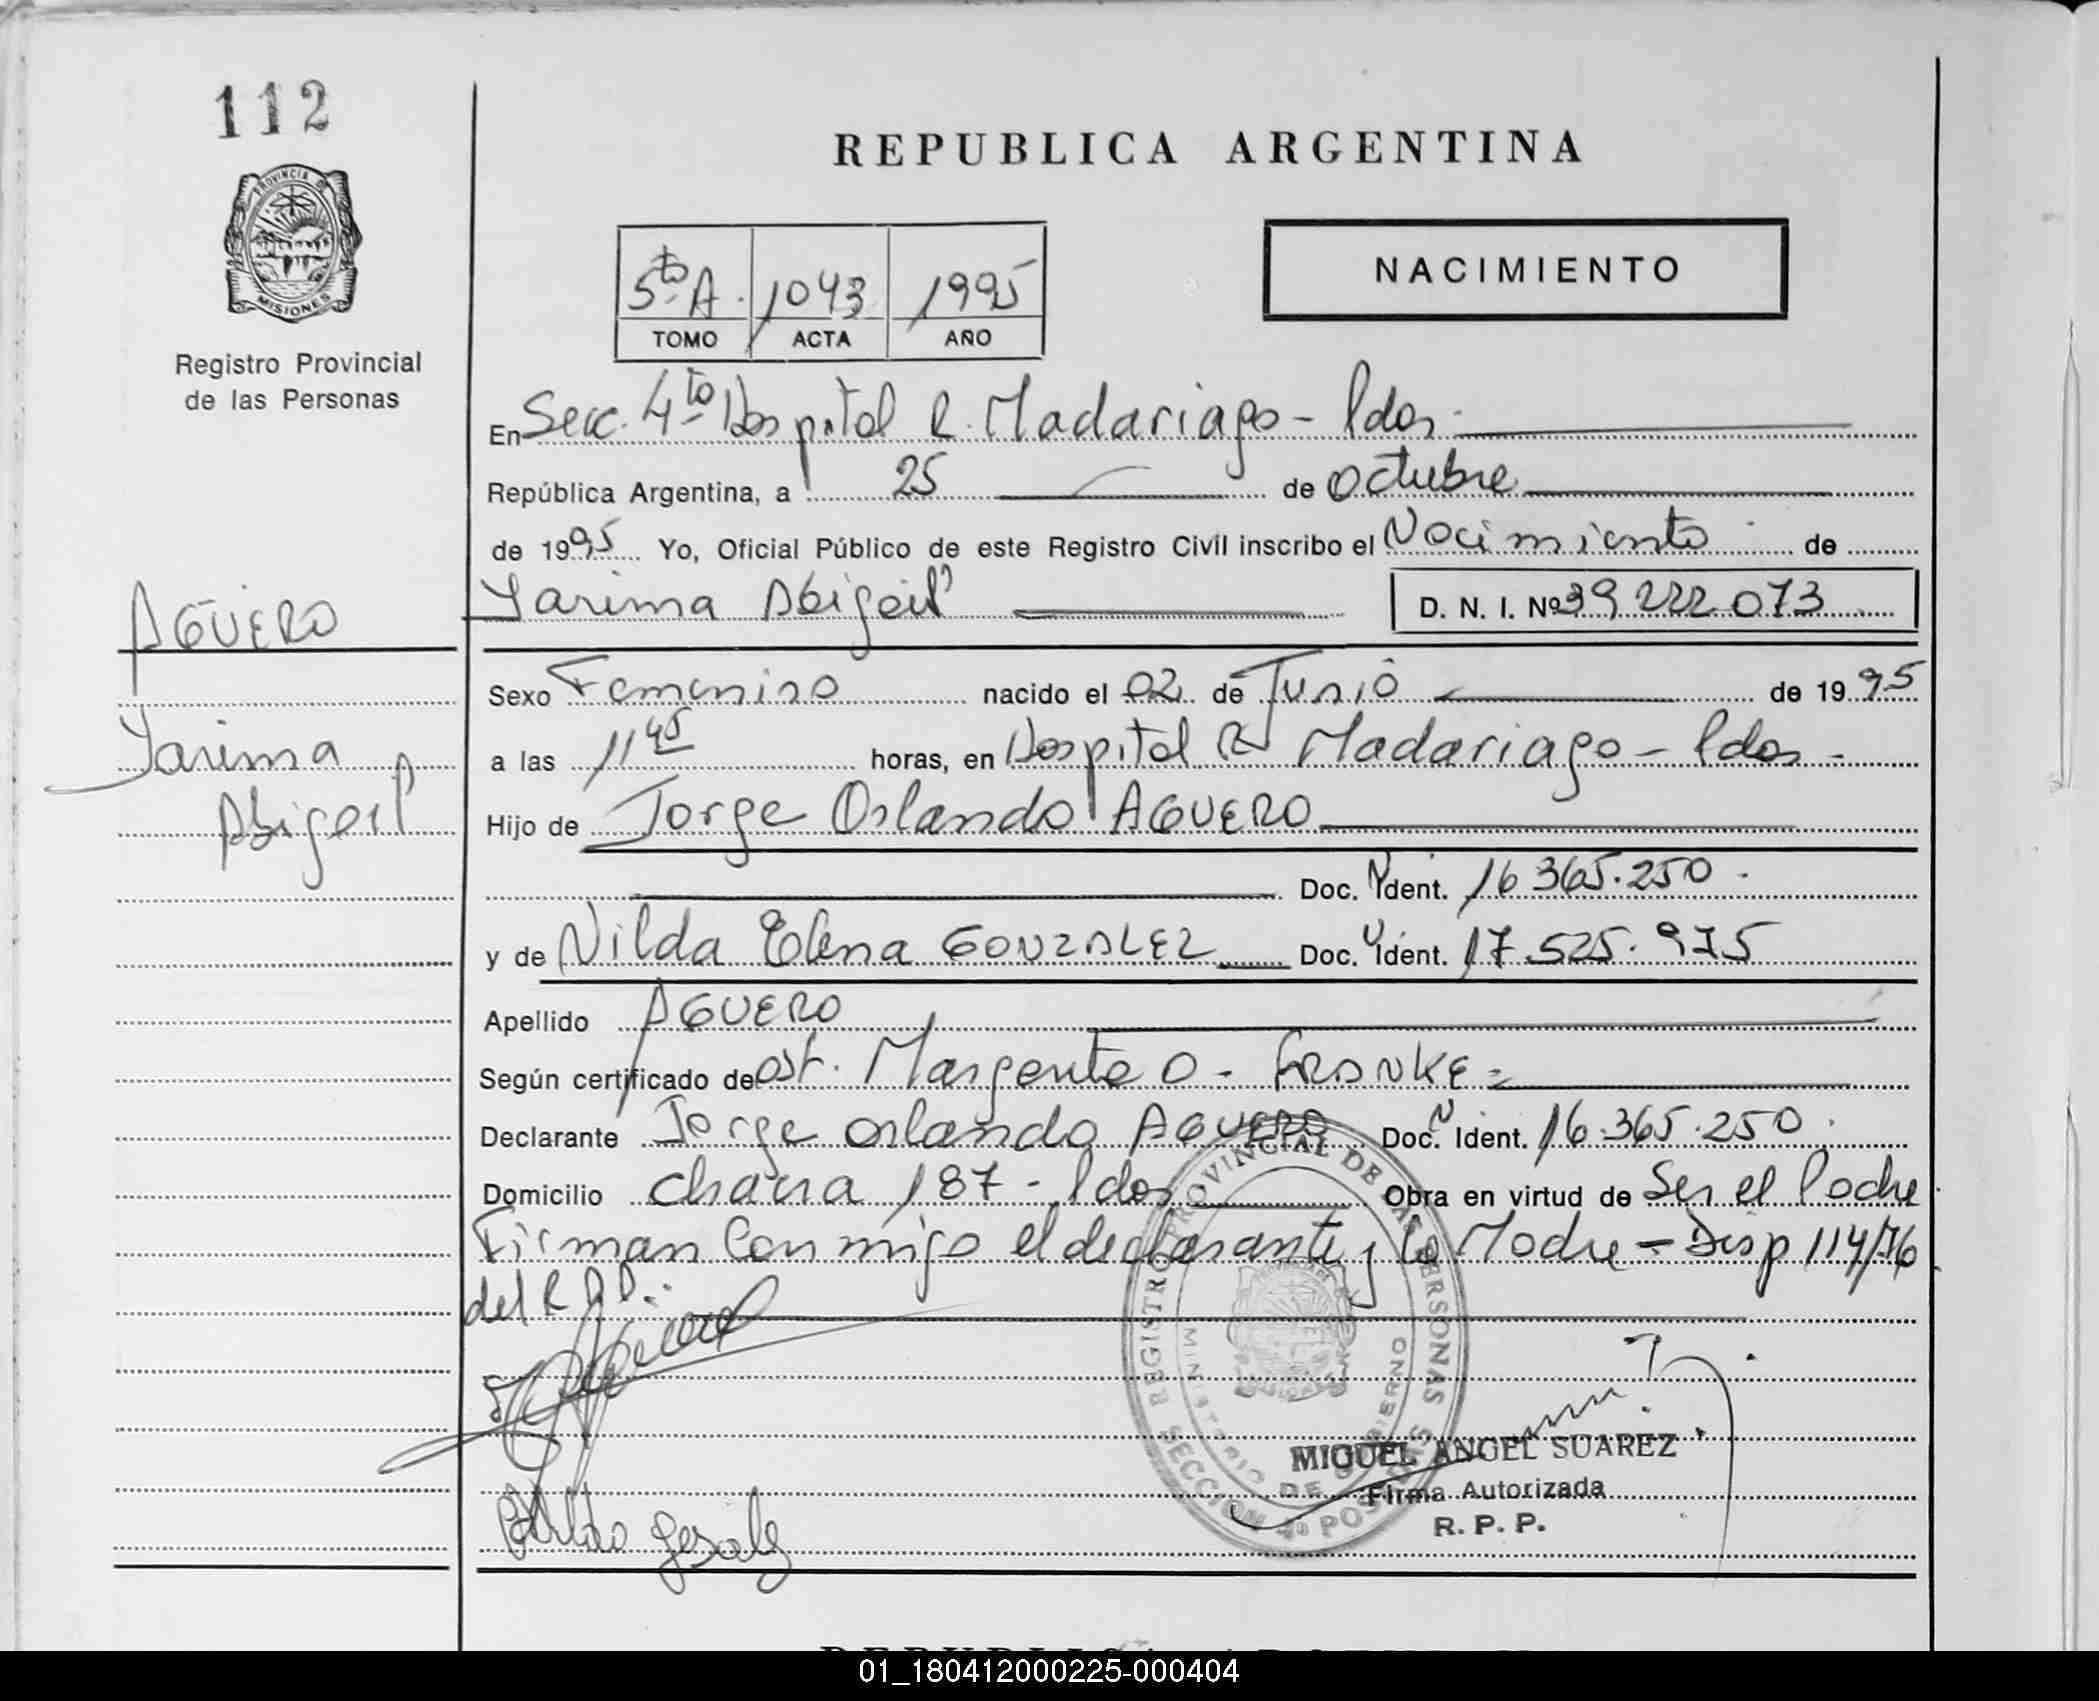 112
PROVINCIA DE
MISIONES
Registro Provincial
de las Personas
AGÜERO
Yarima
Abigail
REPUBLICA ARGENTINA
5to A. 1043 1995
TOMO ACTA AÑO
NACIMIENTO
En Secc. 4to Hospital R. Madariaga - Pdas.
República Argentina, a 25 de Octubre
de 1995 Yo, Oficial Público de este Registro Civil inscribo el Nacimiento de
Yarima Abigail D. N. I. Nº 39 222 073
Sexo Femenino nacido el 02 de Junio de 1995
a las 11 45 horas, en Hospital R Madariaga - Pdas -
Hijo de Jorge Orlando AGUERO
Doc. Ident. 16 365.250 -
y de Nilda Elena GONZALEZ Doc. Ident. 17.525.975
Apellido AGUERO
Según certificado de Obst. Margarita O. FRANKE =
Declarante Jorge Orlando AGUERO Doc. Ident. 16.365.250.
Domicilio chacra 187 - Pdas Obra en virtud de Ser el Padre
Firman Conmigo el declarante y la Madre - Disp 114/76
del R.P.P.
REGISTRO PROVINCIAL DE LAS PERSONAS
MINISTERIO DE GOBIERNO
SECCION 4º POSADAS
MIGUEL ANGEL SUAREZ
Firma Autorizada
R. P. P.
01_180412000225-000404